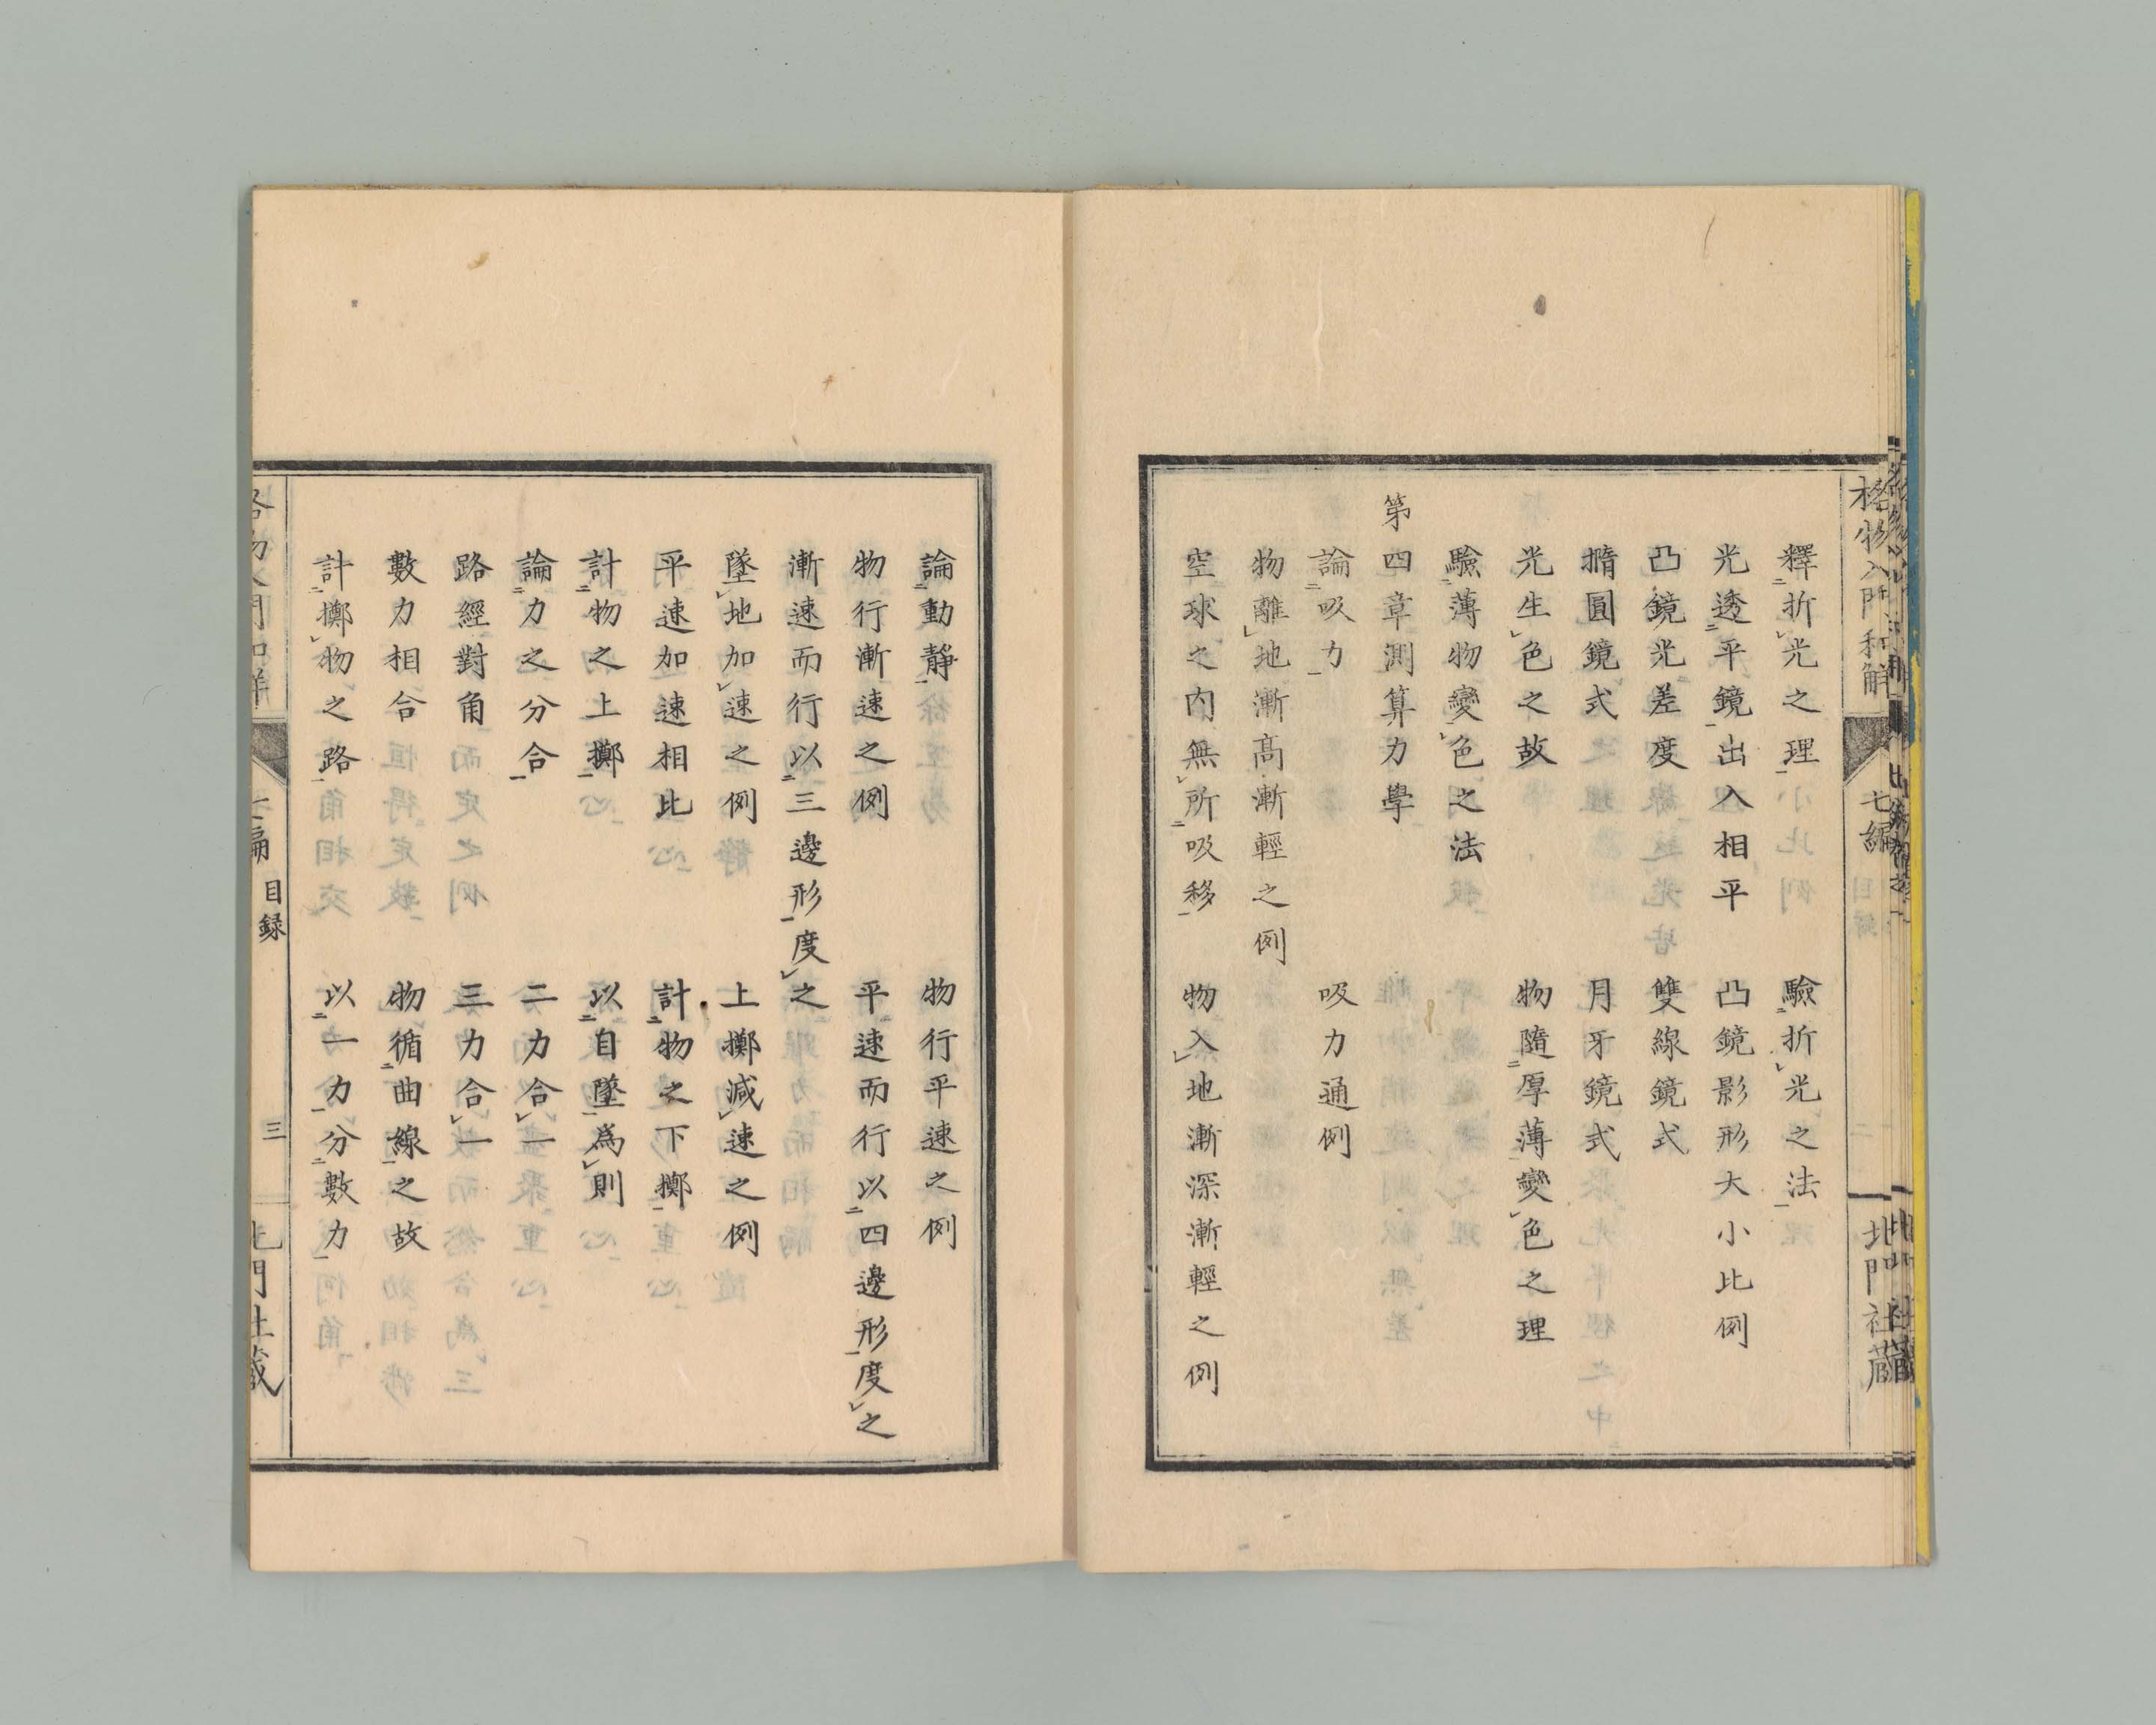 格物入門和解 七編 北門社蔵
釋折光之理 驗折光之法
光透平鏡出入相平 凸鏡影形大小比例
凸鏡光差度 雙線鏡式
撱圓鏡式 月牙鏡式
光生色之故 物隨厚薄變色之理
驗薄物變色之法
第四章測算力學
論吸力 吸力通例
物離地漸高漸輕之例
空球之内無所吸移 物入地漸深漸輕之例
論動靜 物行平速之例
物行漸速之例 平速而行以四邊形度之
漸速而行以三邊形度之
墜地加速之例 上擲減速之例
平速加速相比 計物之下擲
計物之上擲 以自墜為則
論力之分合 二力合一
路經對角 三力合一
數力相合 物循曲線之故
計擲物之路 以一力分數力
格物入門和解 七編 目録 三 北門社蔵